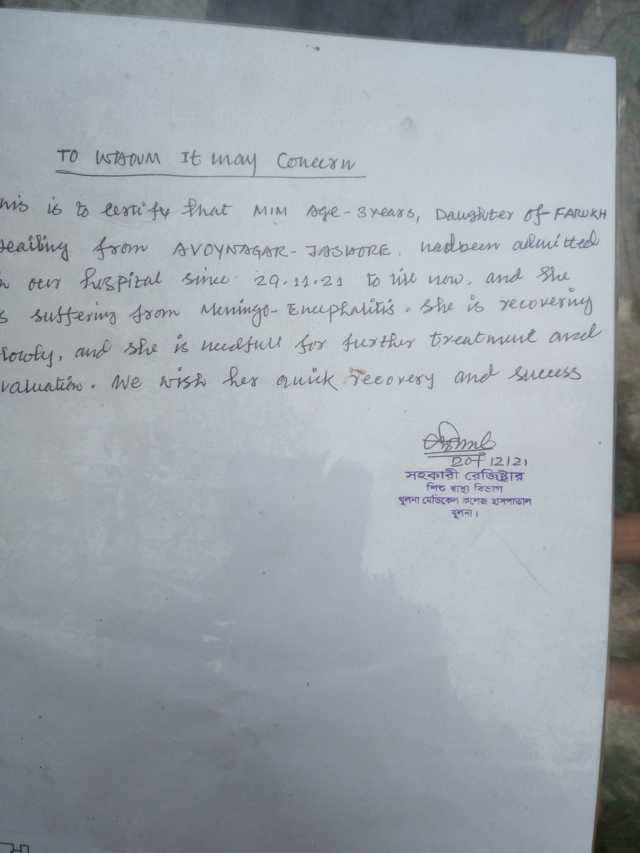 TO WHOM It may Concern
his is to certify that MIM Age - 3 years, Daughter of FARUKH
eailing from AVOYNAGAR - JASHORE. hadbeen admitted
our huspital since 29.11.21 to till now. and She
s suffering from Meningo- Encephalitis. She is recovering
lowly, and she is needfull for further treatment and
valuation. We wish her quick recovery and success
12/21
সহকারী রেজিষ্ট্রার
শিশু স্বাস্থ্য বিভাগ
খুলনা মেডিকেল কলেজ হাসপাতাল
খুলনা।